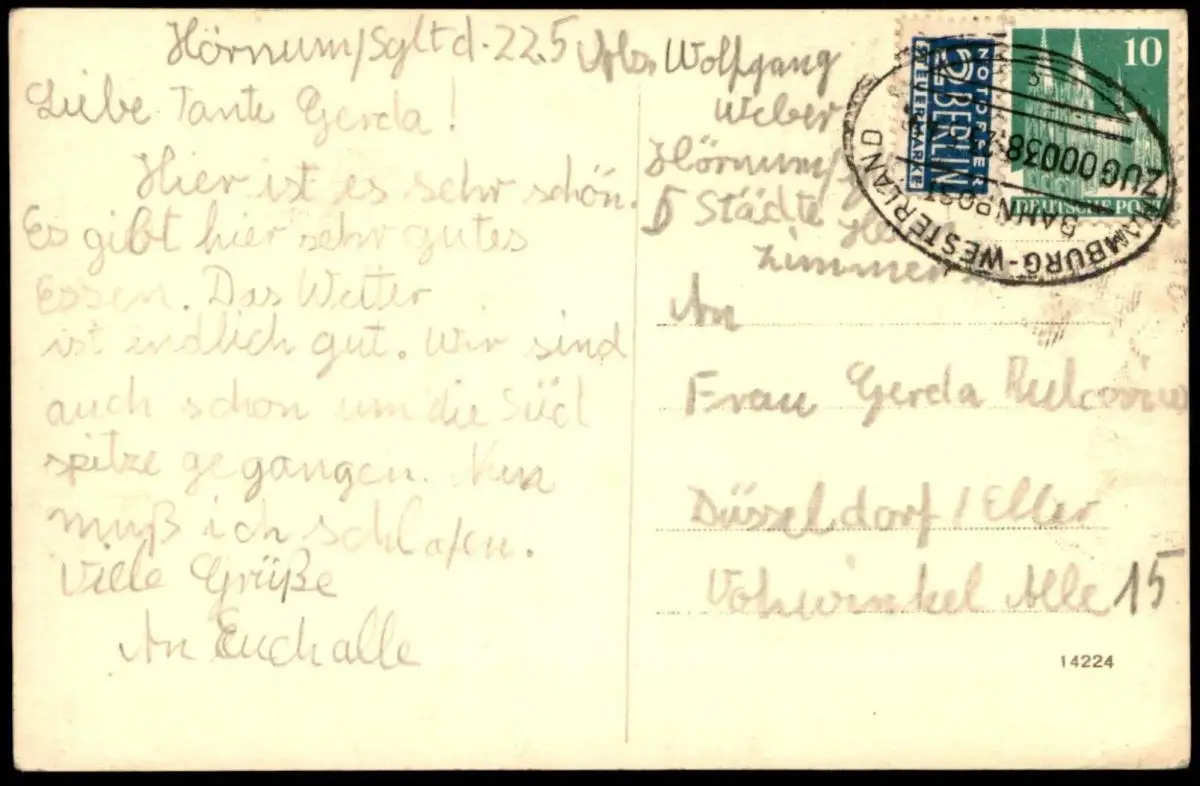 Hörnum/Sylt d. 22.5
Liebe Tante Gerda!
Hier ist es sehr schön.
Es gibt hier sehr gutes
Essen. Das Wetter
ist endlich gut. Wir sind
auch schon um die Süd
spitze gegangen. Nun
muß ich schlafen.
Viele Grüße
An Euch alle
Abs. Wolfgang
Weber
Hörnum/
5 Städte
Zimmer
An
Frau Gerda
Düsseldorf/Eller
Vohwinkel Alle 15
14224
NOTOPFER
2 BERLIN
STEUERMARKE
10
DEUTSCHE POST
HAMBURG-WESTERLAND
BAHNPOST
ZUG 00038